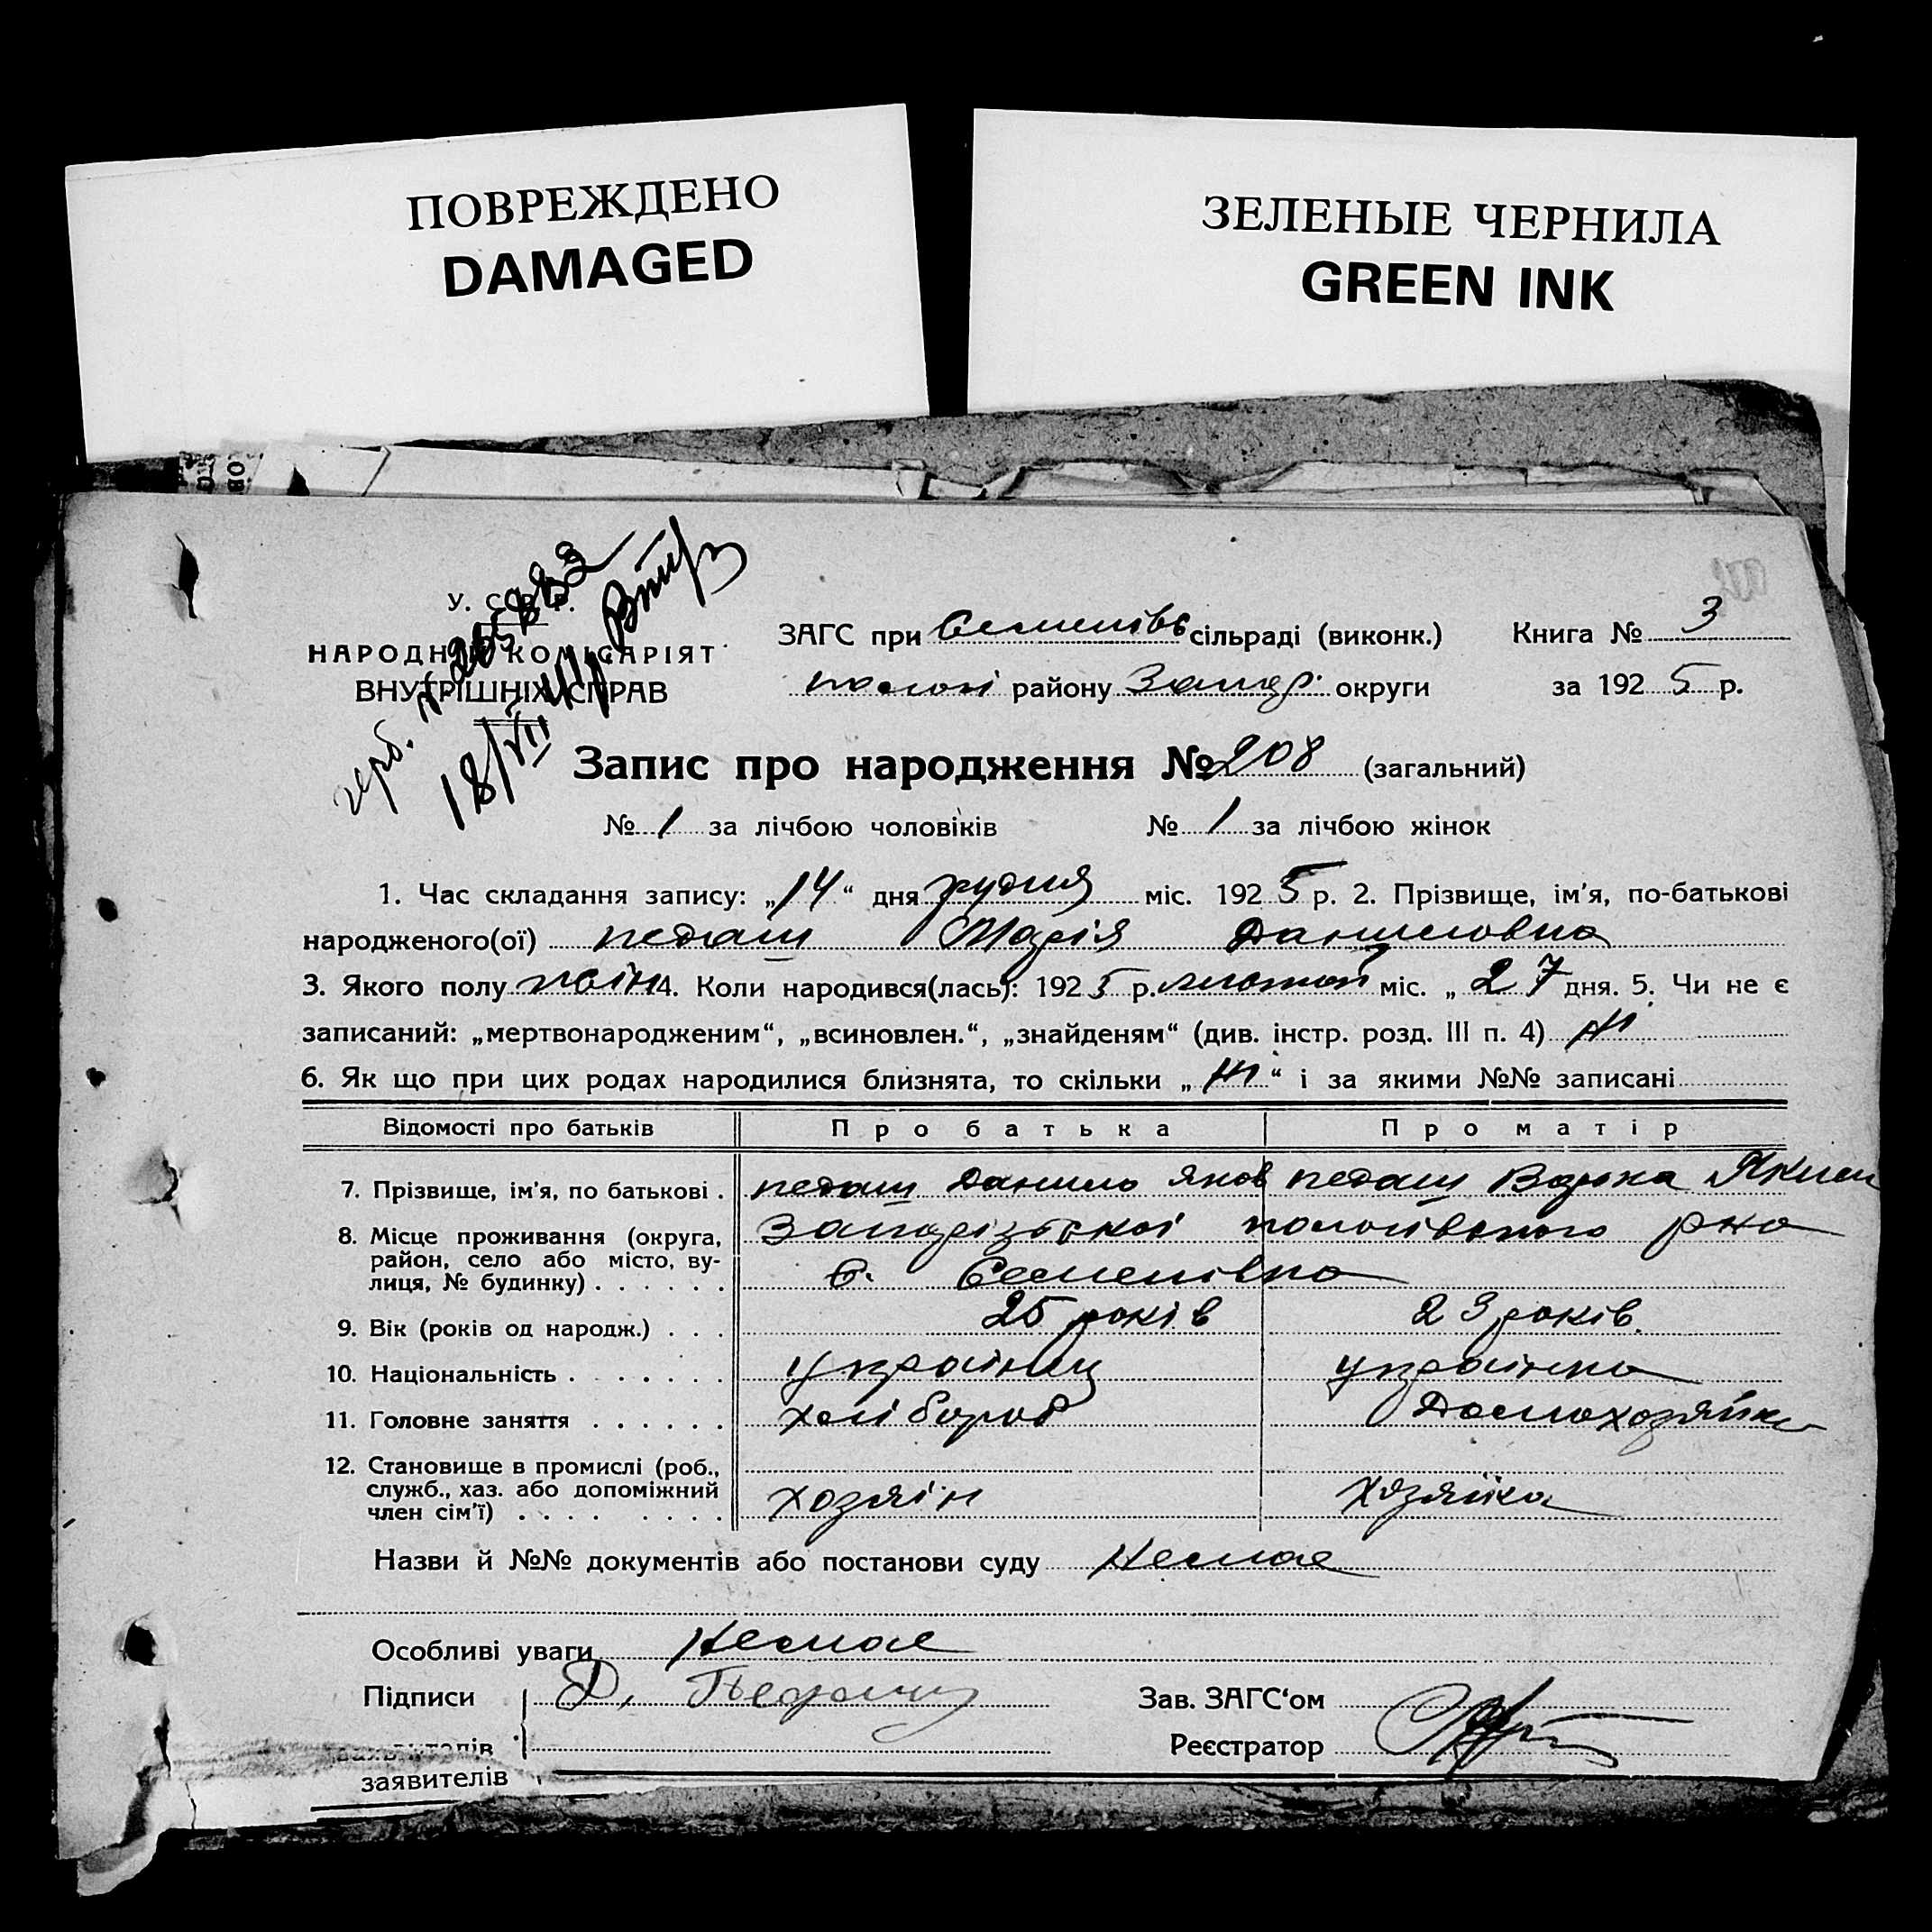 ПОВРЕЖДЕНО
DAMAGED
ЗЕЛЕНЫЕ ЧЕРНИЛА
GREEN INK
У. С.Р.Р.
НАРОДНІЙ КОМІСАРІЯТ
ВНУТРІШНІХ СПРАВ
18/VII
ЗАГС при Семенівс сільраді (виконк.) Книга № 3
району Запор. округи за 1925 р.
Запис про народження № 208 (загальний)
№ 1 за лічбою чоловіків № 1 за лічбою жінок
1. Час складання запису: „14“ дня грудня міс. 1925 р. 2. Прізвище, ім'я, по-батькові
народженого(ої) педаш Марія Даниловна
3. Якого полу жін 4. Коли народився(лась): 1925 р. листопад міс. „27 дня. 5. Чи не є
записаний: „мертвонародженим“, „всиновлен.“, „знайденям“ (див. інстр. розд. III п. 4) ні
6. Як що при цих родах народилися близнята, то скільки „ні“ і за якими №№ записані
Відомості про батьків Про батька Про матір
7. Прізвище, ім'я, по батькові . педаш Данило Яков педаш Варка Яким
8. Місце проживання (округа, Запорізської пологівського р-на
район, село або місто, ву-
лиця, № будинку) . . . . . . С. Семенівка
9. Вік (років од народж.) . . . 25 років 23 років.
10. Національність . . . . . . . українец українка
11. Головне заняття . . . . . . хлібороб Домохозяйка
12. Становище в промислі (роб.,
служб., хаз. або допоміжний хозяїн хозяйка
член сім'ї) . . . . . . . .
Назви й №№ документів або постанови суду Немае
Особливі уваги Немае
Підписи Д. Педаш Зав. ЗАГС‘ом
Реєстратор
заявителів